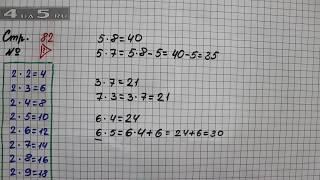 4 НА 5 RU
Стр. 82
№
2·2=4
2·3=6
2·4=8
2·5=10
2·6=12
2·7=14
2·8=16
2·9=18
5·8=40
5·7=5·8-5=40-5=35
3·7=21
7·3=3·7=21
6·4=24
6·5=6·4+6=24+6=30